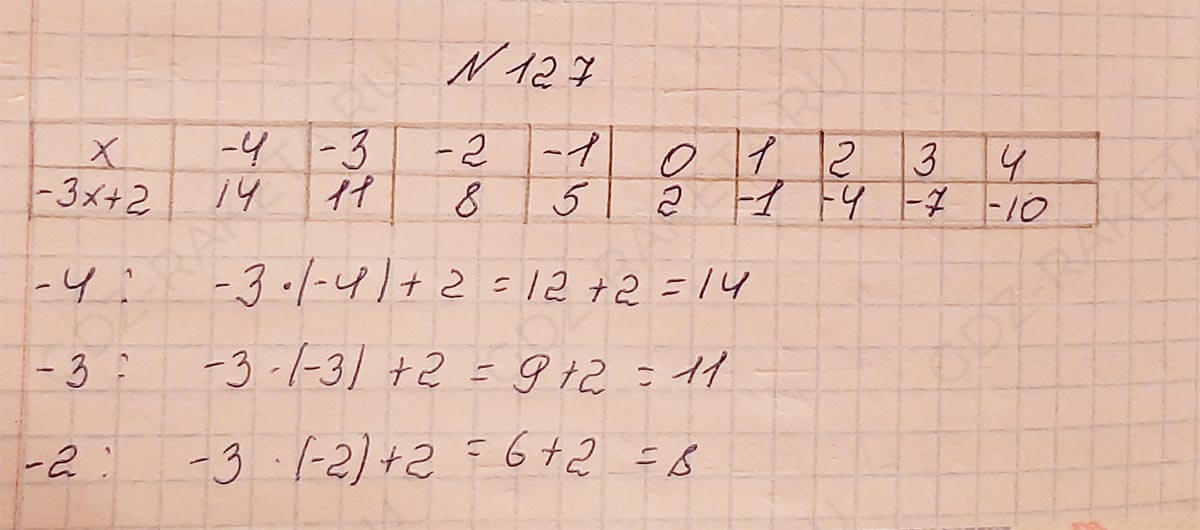 N 127
x -4 -3 -2 -1 0 1 2 3 4
-3x+2 14 11 8 5 2 -1 -4 -7 -10
-4: -3·(-4)+2=12+2=14
-3: -3·(-3)+2=9+2=11
-2: -3·(-2)+2=6+2=8